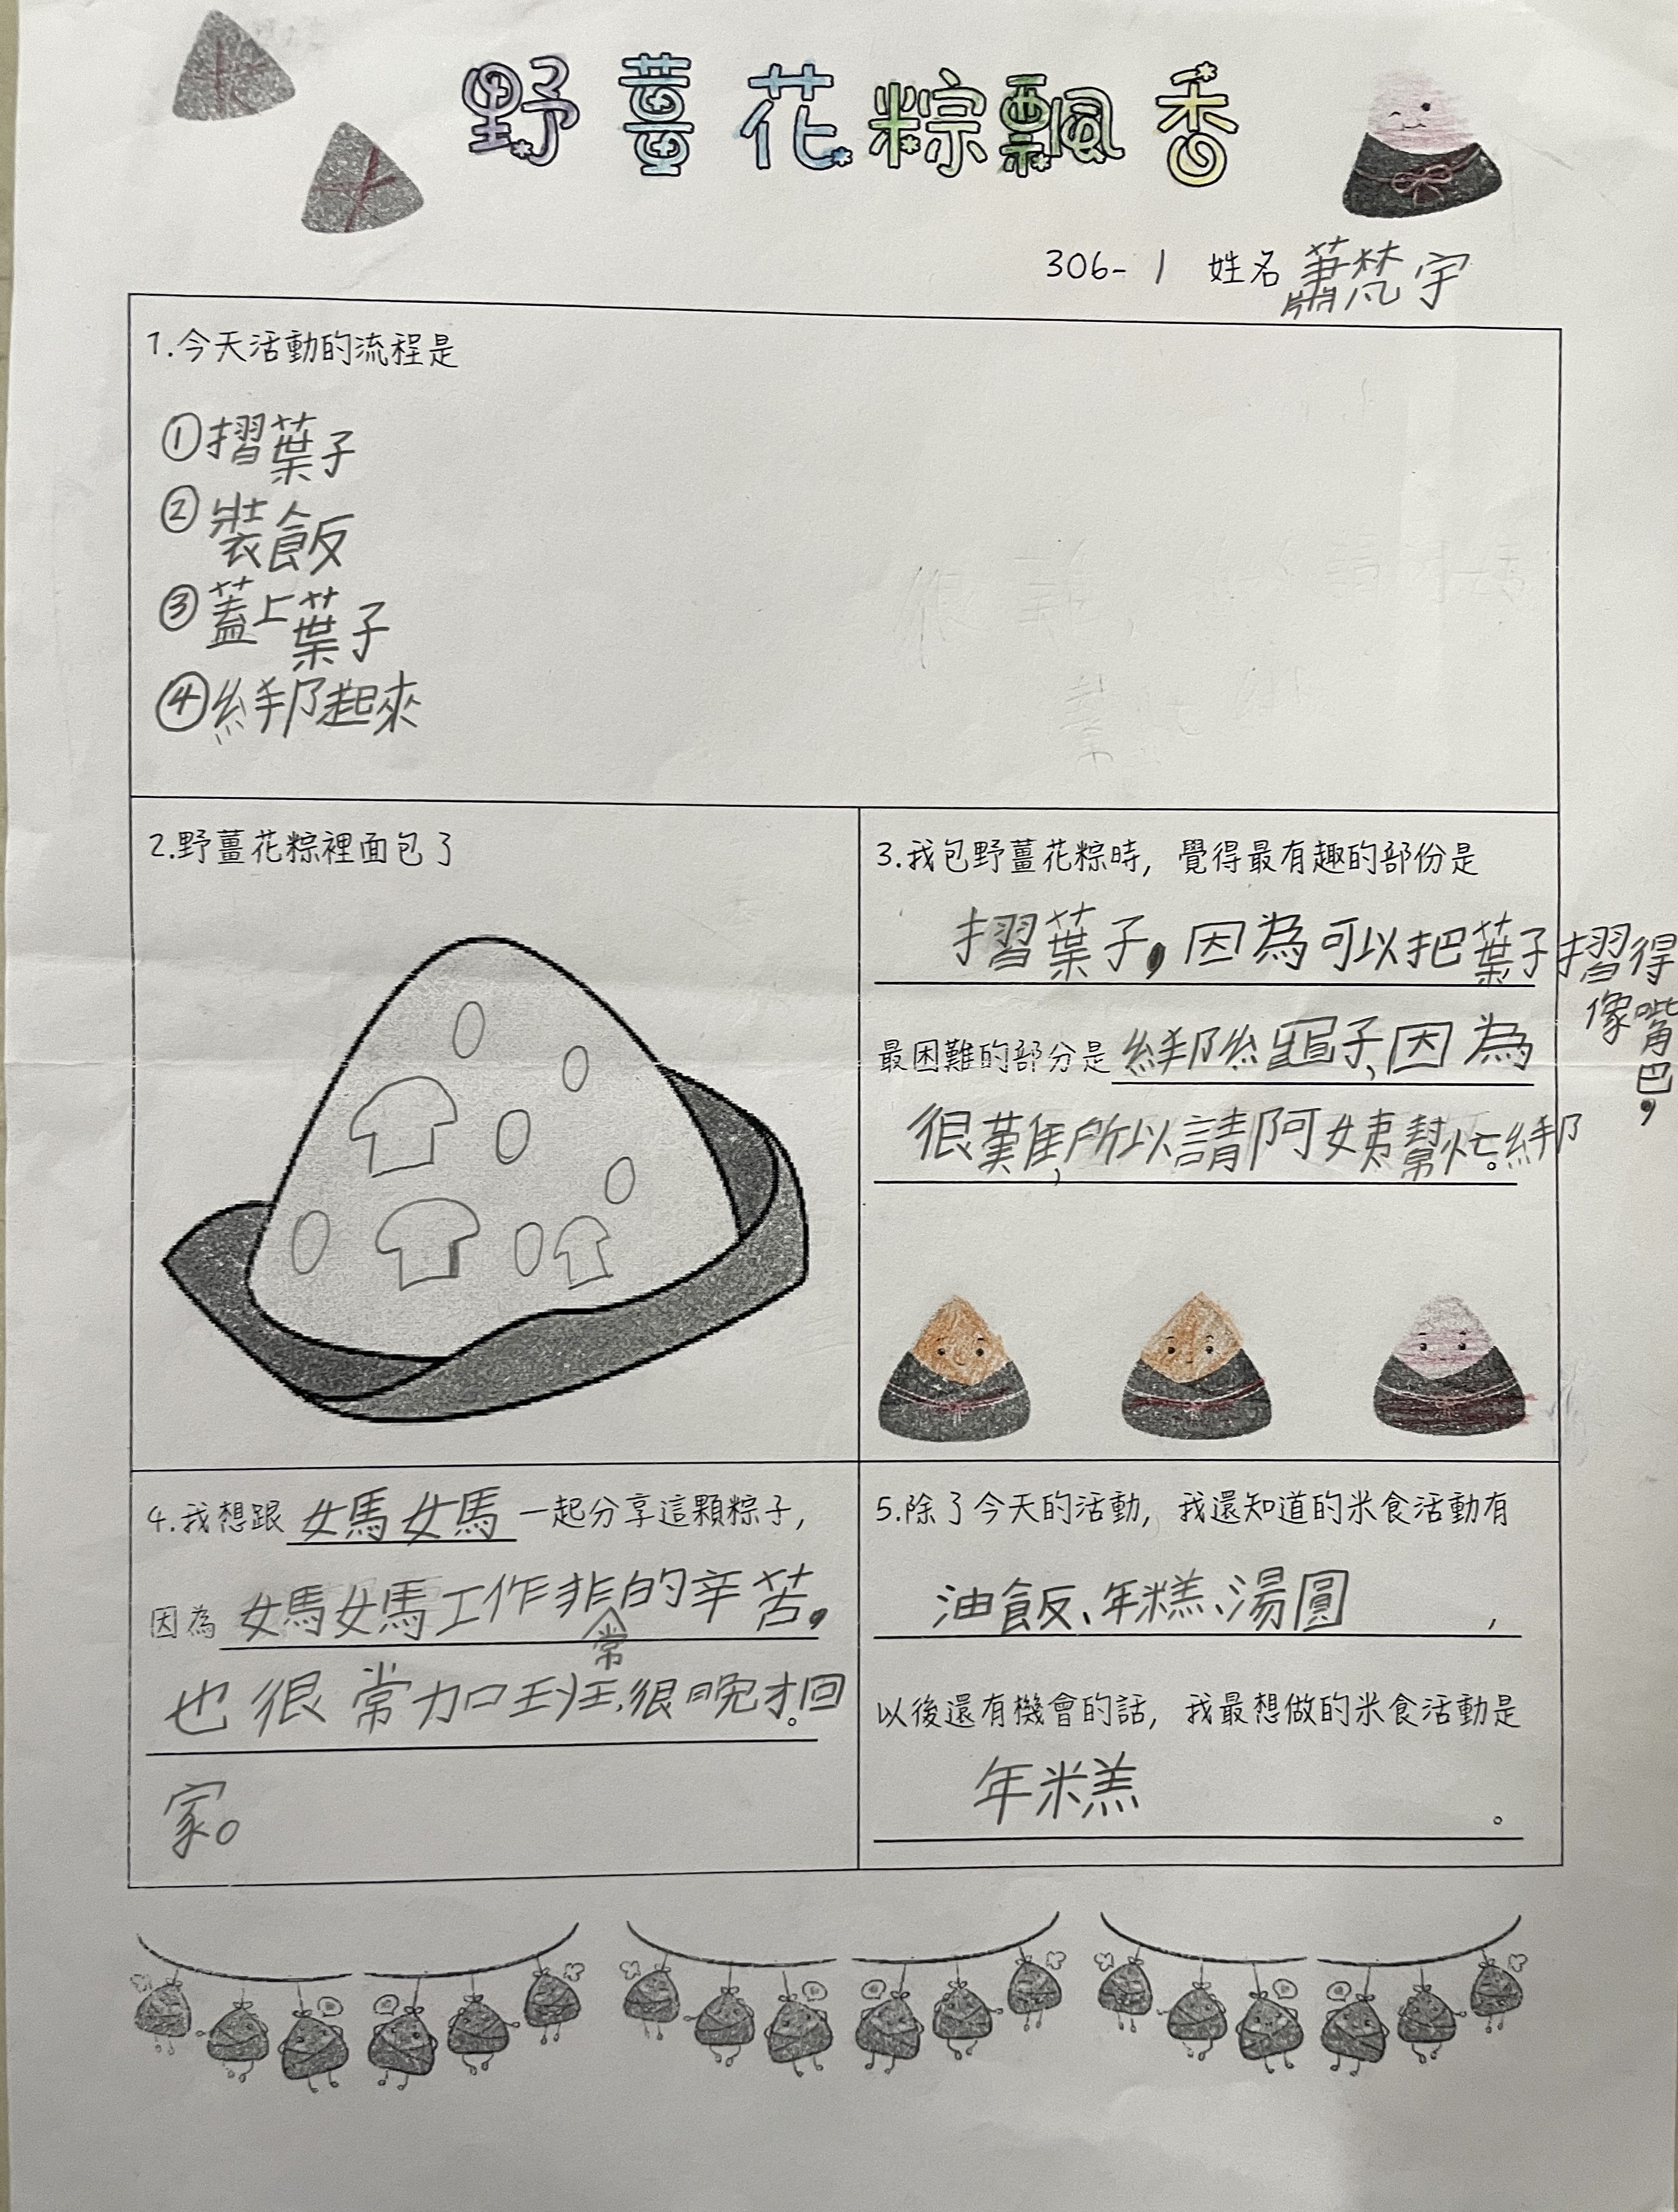 野薑花粽飄香
306-1 姓名 蕭梵宇
1.今天活動的流程是
①摺葉子
②裝飯
③蓋上葉子
④綁起來
2.野薑花粽裡面包了
3.我包野薑花粽時，覺得最有趣的部份是
摺葉子，因為可以把葉子摺得
像嘴巴，
最困難的部分是綁繩子，因為
很難，所以請阿姨幫忙綁。
4.我想跟媽媽一起分享這顆粽子，
因為媽媽工作非常的辛苦，
也很常加班，很晚才回
家。
5.除了今天的活動，我還知道的米食活動有
油飯、年糕、湯圓，
以後還有機會的話，我最想做的米食活動是
年糕。